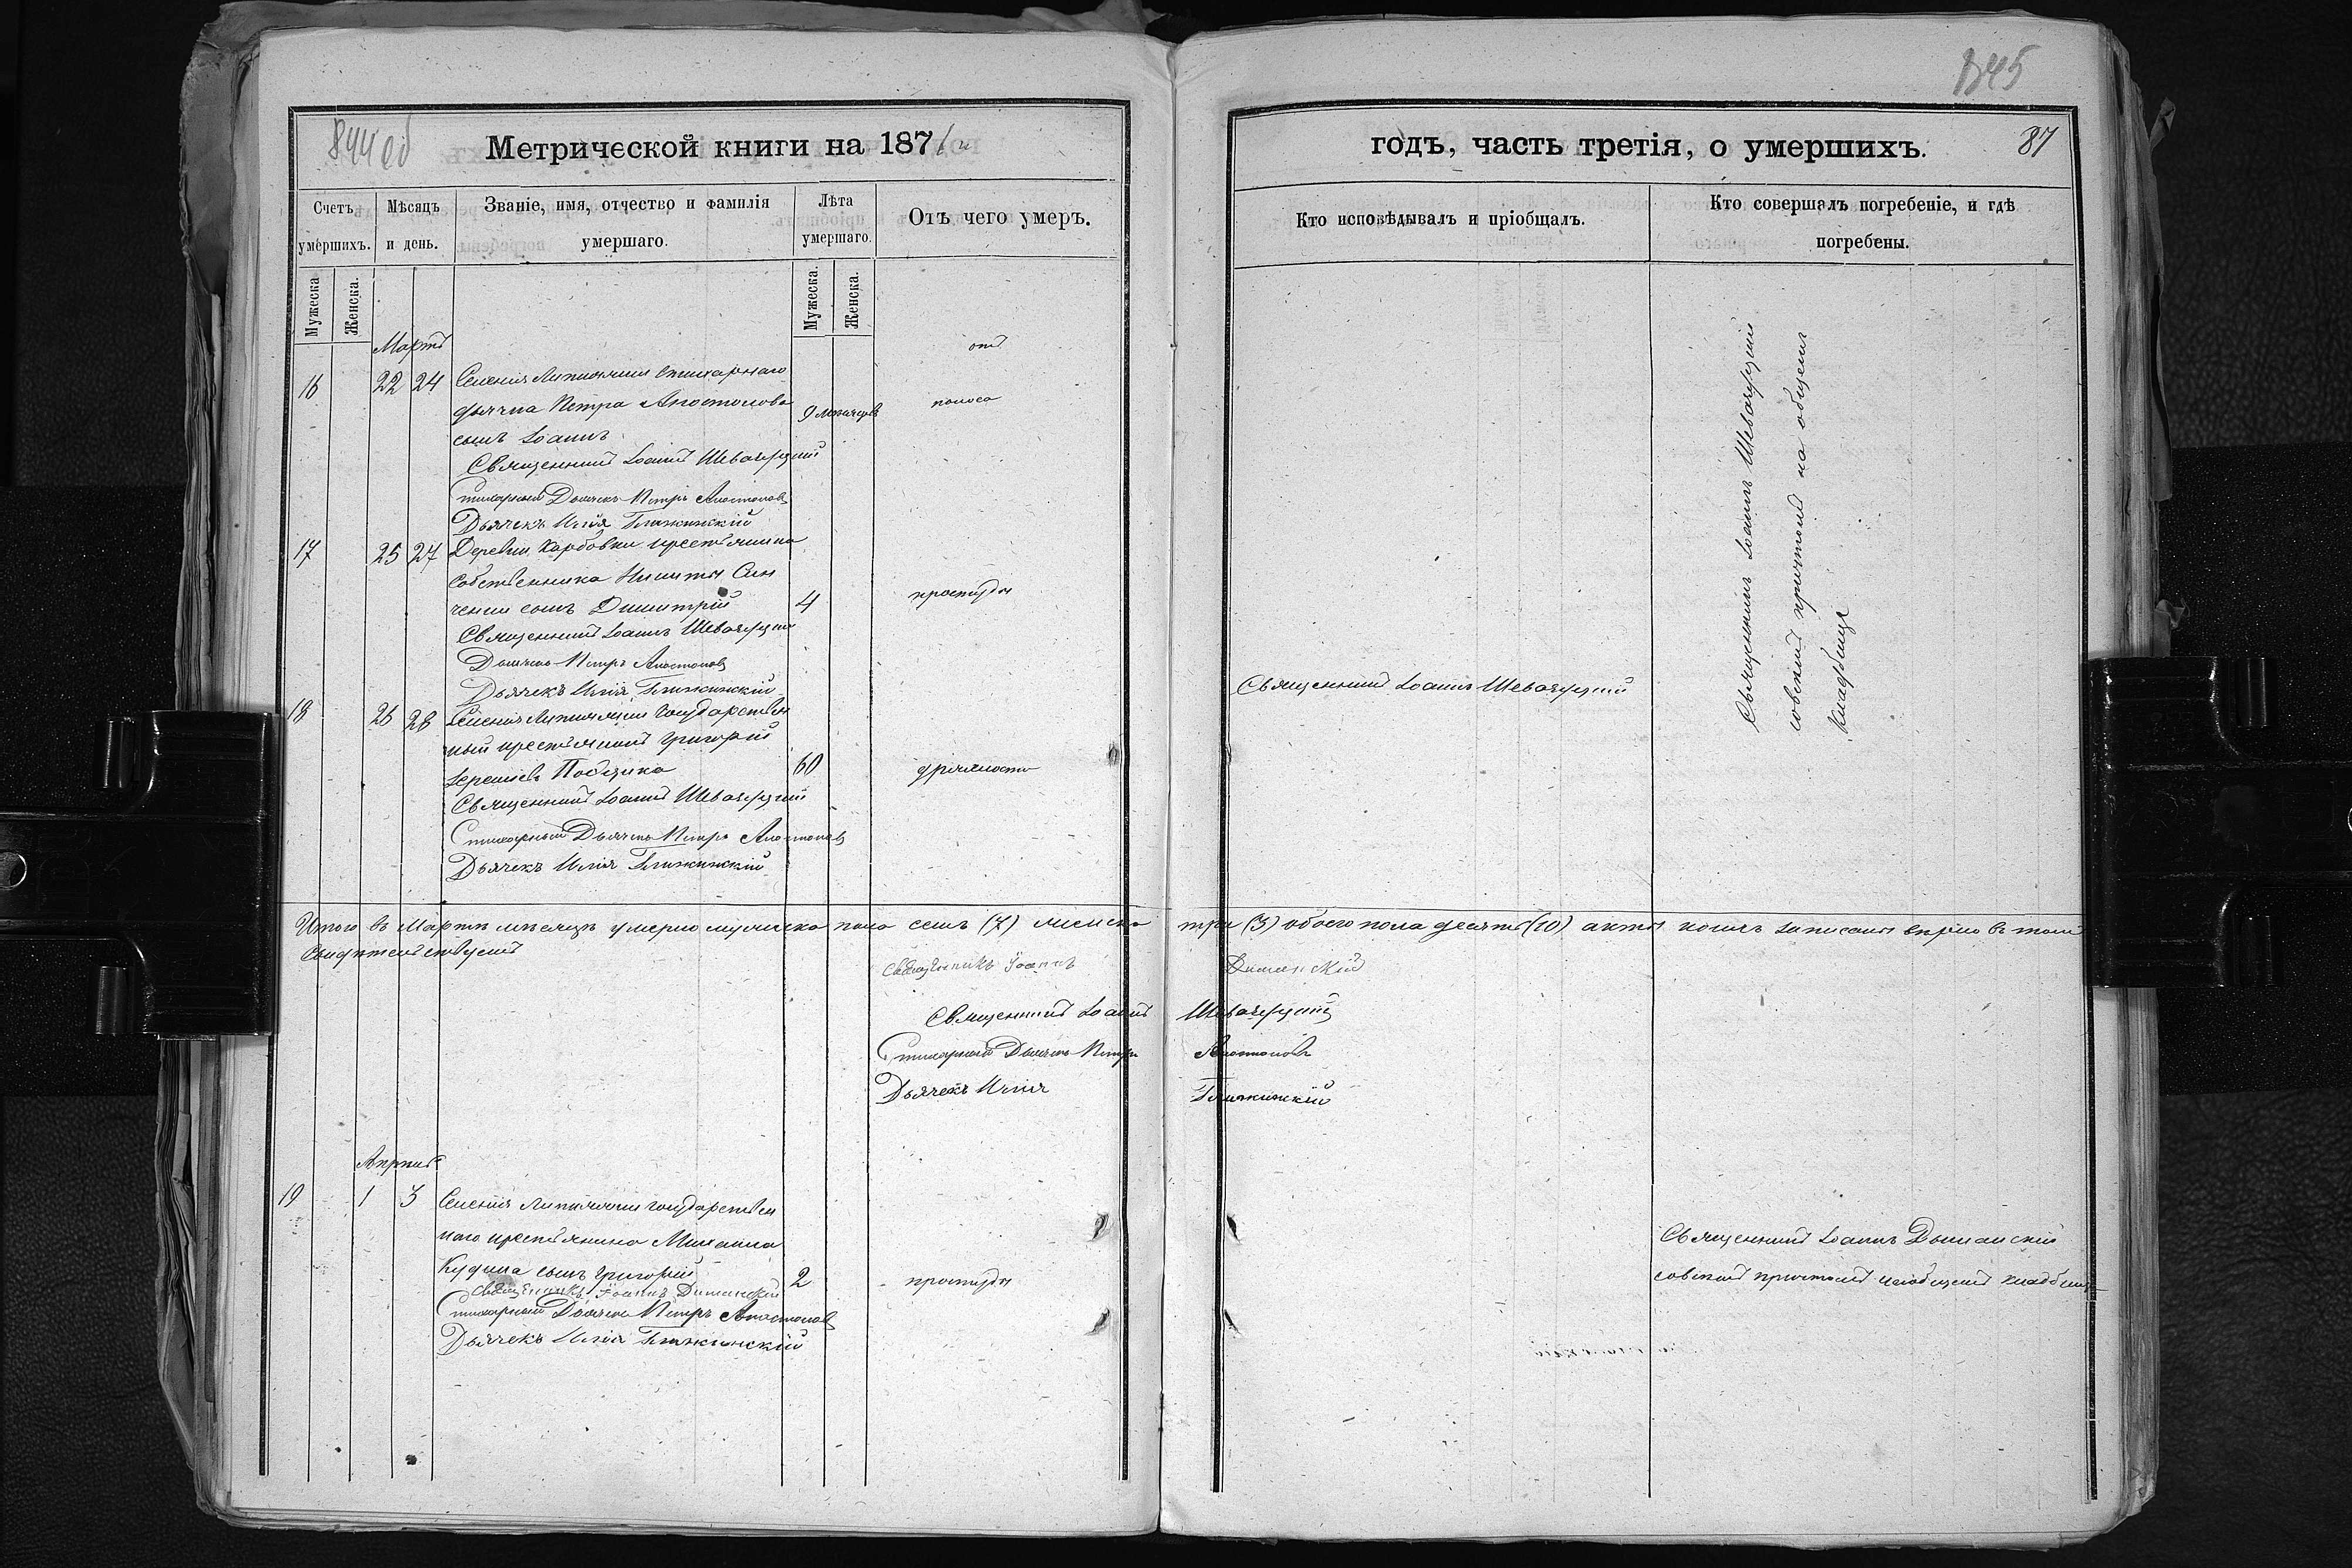 844 об
Метрической книги на 1871 и
Счетъ умершихъ.
Мѣсяцъ и день.
Званіе, имя, отчество и фамилія умершаго.
Лѣта умершаго.
Отъ чего умеръ.
Мужеска
Женска.
Мужеска.
Женска.
Мартъ
отъ
16 22 24 Селенія Липнячки стихарнаго
дьячка Петра Апостолова 9 месяцовъ поноса
сынъ Іоаннъ
Священникъ Іоаннъ
Стихарный Дьячекъ Петръ Апостоловъ
Дьячекъ Илія
17 25 27 Деревни крестьянина
собственника Никиты Сен
ченки сынъ Димитрій 4 простуды
Священникъ Іоаннъ
Дьячекъ Петръ Апостоловъ
Дьячекъ Илія
18 26 28 Селенія Липнячки Государствен
ный крестьянинъ Григорій
60 дряхлости
Священникъ Іоаннъ
Стихарный Дьячекъ Петръ Апостоловъ
Дьячекъ Илія
Итого въ Мартѣ мѣсяцѣ умерло мужеска пола семь (7) женска
свидѣтельствуемъ
Священникъ Іоаннъ
Священникъ Іоаннъ
Стихарный Дьячекъ Петръ
Дьячекъ Илія
Апрѣль
19 1 3 Селенія Липнячки государствен
наго крестьянина Михаила
сынъ Григорій 2 простуды
Священникъ Іоаннъ Диманскій
Стихарный Дьячекъ Петръ Апостоловъ
Дьячекъ Илія
845
годъ, часть третія, о умершихъ. 87
Кто исповѣдывалъ и пріобщалъ.
Кто совершалъ погребеніе, и гдѣ погребены.
Священникъ Іоаннъ
со всемъ причтомъ на общемъ
кладбище
Священникъ Іоаннъ
три (3) обоего пола десять (10) акты коихъ записаны вѣрно въ томъ
Диманскій
Апостоловъ
Священникъ Іоаннъ Диманскій
со всемъ причтомъ на общемъ кладбище